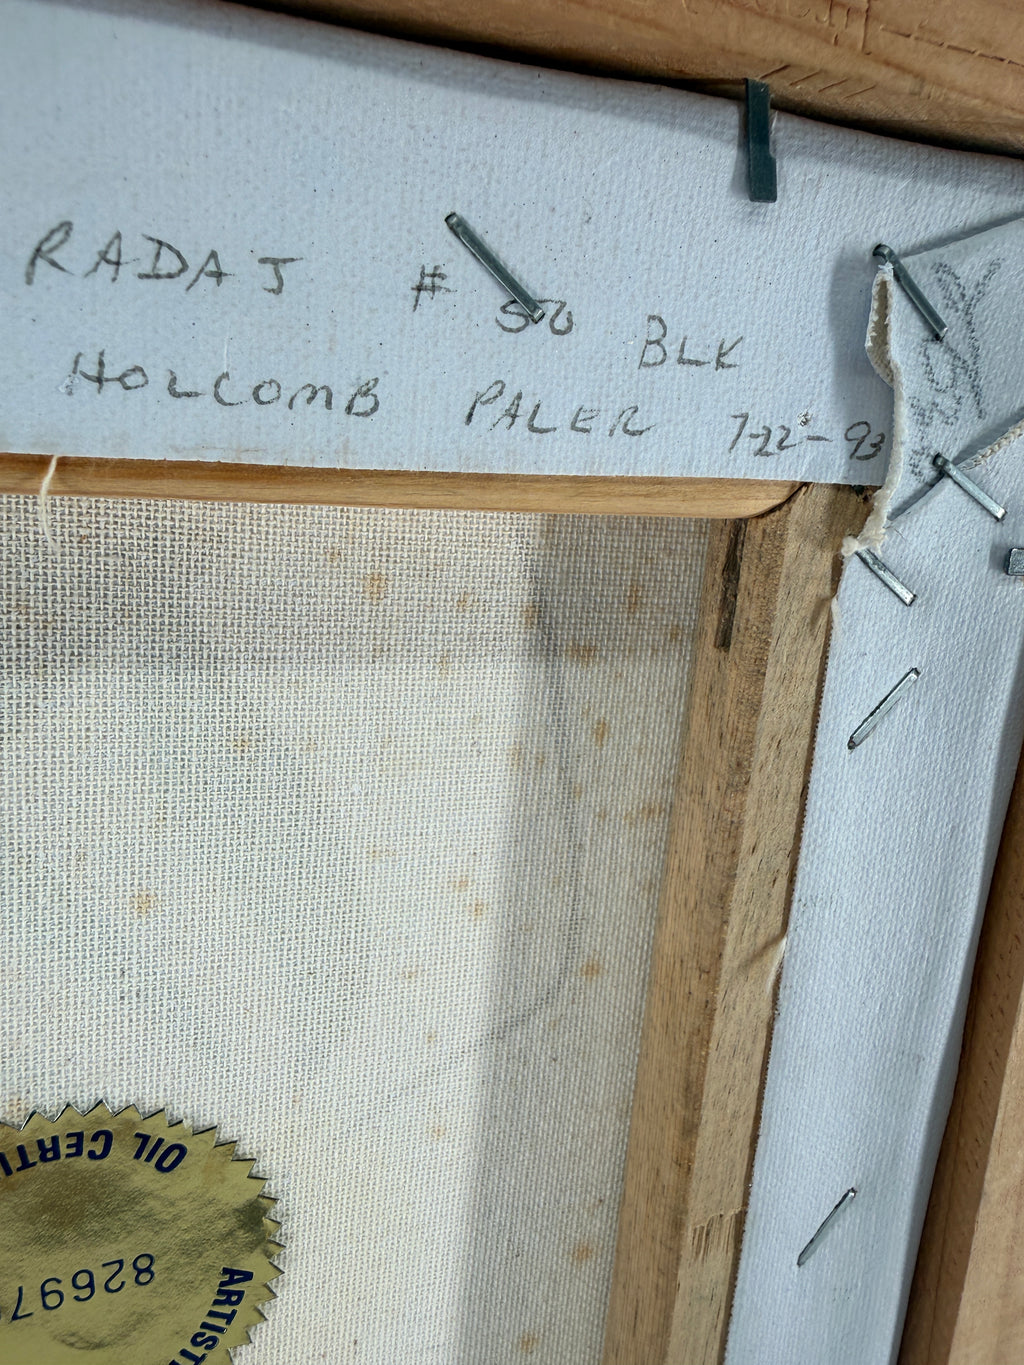 RADAJ # 50 BLK
HOLCOMB PALER 7-22-93
OIL CERTI
82697
ARTIST